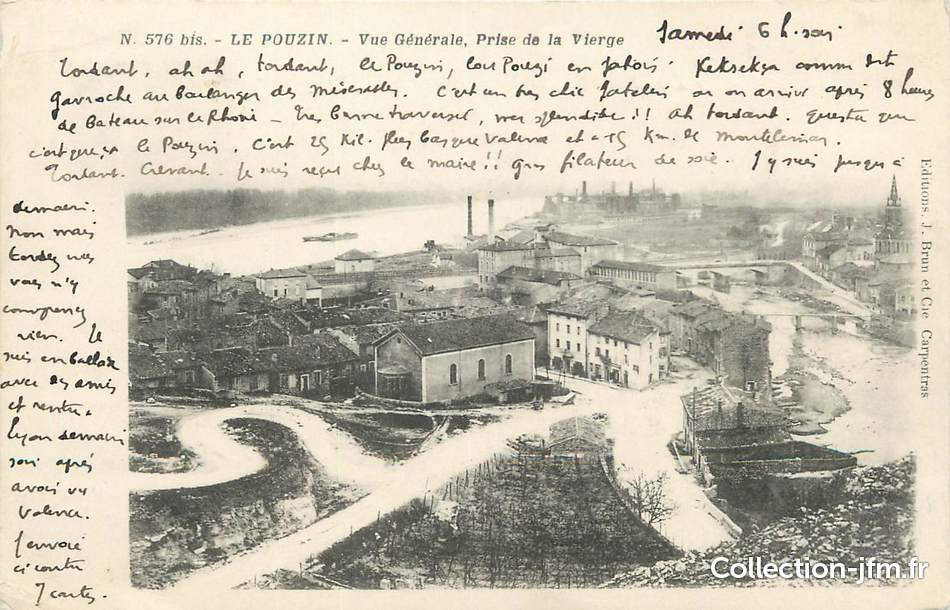 N. 576 bis. - LE POUZIN. - Vue Générale, Prise de la Vierge
Samedi 6 h. soir
Tordant, ah ah, tordant, le Pouzin, lou Pouzi en patois. Keksekça comm dit
Gavroche au boulanger des misérables. C'est un très chic patelin où on arrive après 8 heures
de Bateau sur le Rhône - Très bonne traversée, mer splendide!! Ah tordant.
c'est que ça le Pouzin. C'est 25 Kil. plus bas que Valence et à 15 Km. de Montélimar.
Tordant. Crevant. Je suis reçu chez le maire!! Gros filateur de soie. J'y suis jusqu'à
demain.
Non mais
tordez vous
vous n'y
comprenez
rien. Je
suis en ballade
avec des amis
et rentre à
Lyon demain
soir après
avoir vu
Valence.
J'envoie
ci contre
7 cartes.
Editions. J. Brun et Cie Carpentras
Collection-jfm.fr